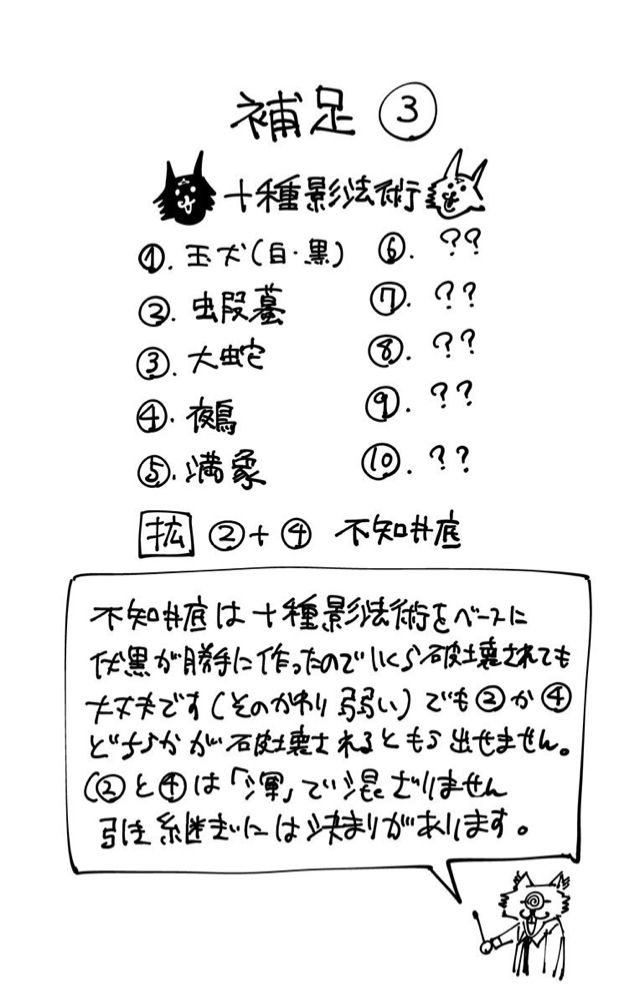 補足 ③
十種影法術
①. 玉犬(白・黒)
②. 蝦蟇
③. 大蛇
④. 鵺
⑤. 満象
⑥. ??
⑦. ??
⑧. ??
⑨. ??
⑩. ??
拡 ②+④ 不知井底
不知井底は十種影法術をベースに
伏黒が勝手に作ったのでいくら破壊されても
大丈夫です(そのかわり弱い)でも②か④
どちらかが破壊されるともう出せません。
(②と④は「渾」で混ざりません
引き継ぎには決まりがあります。